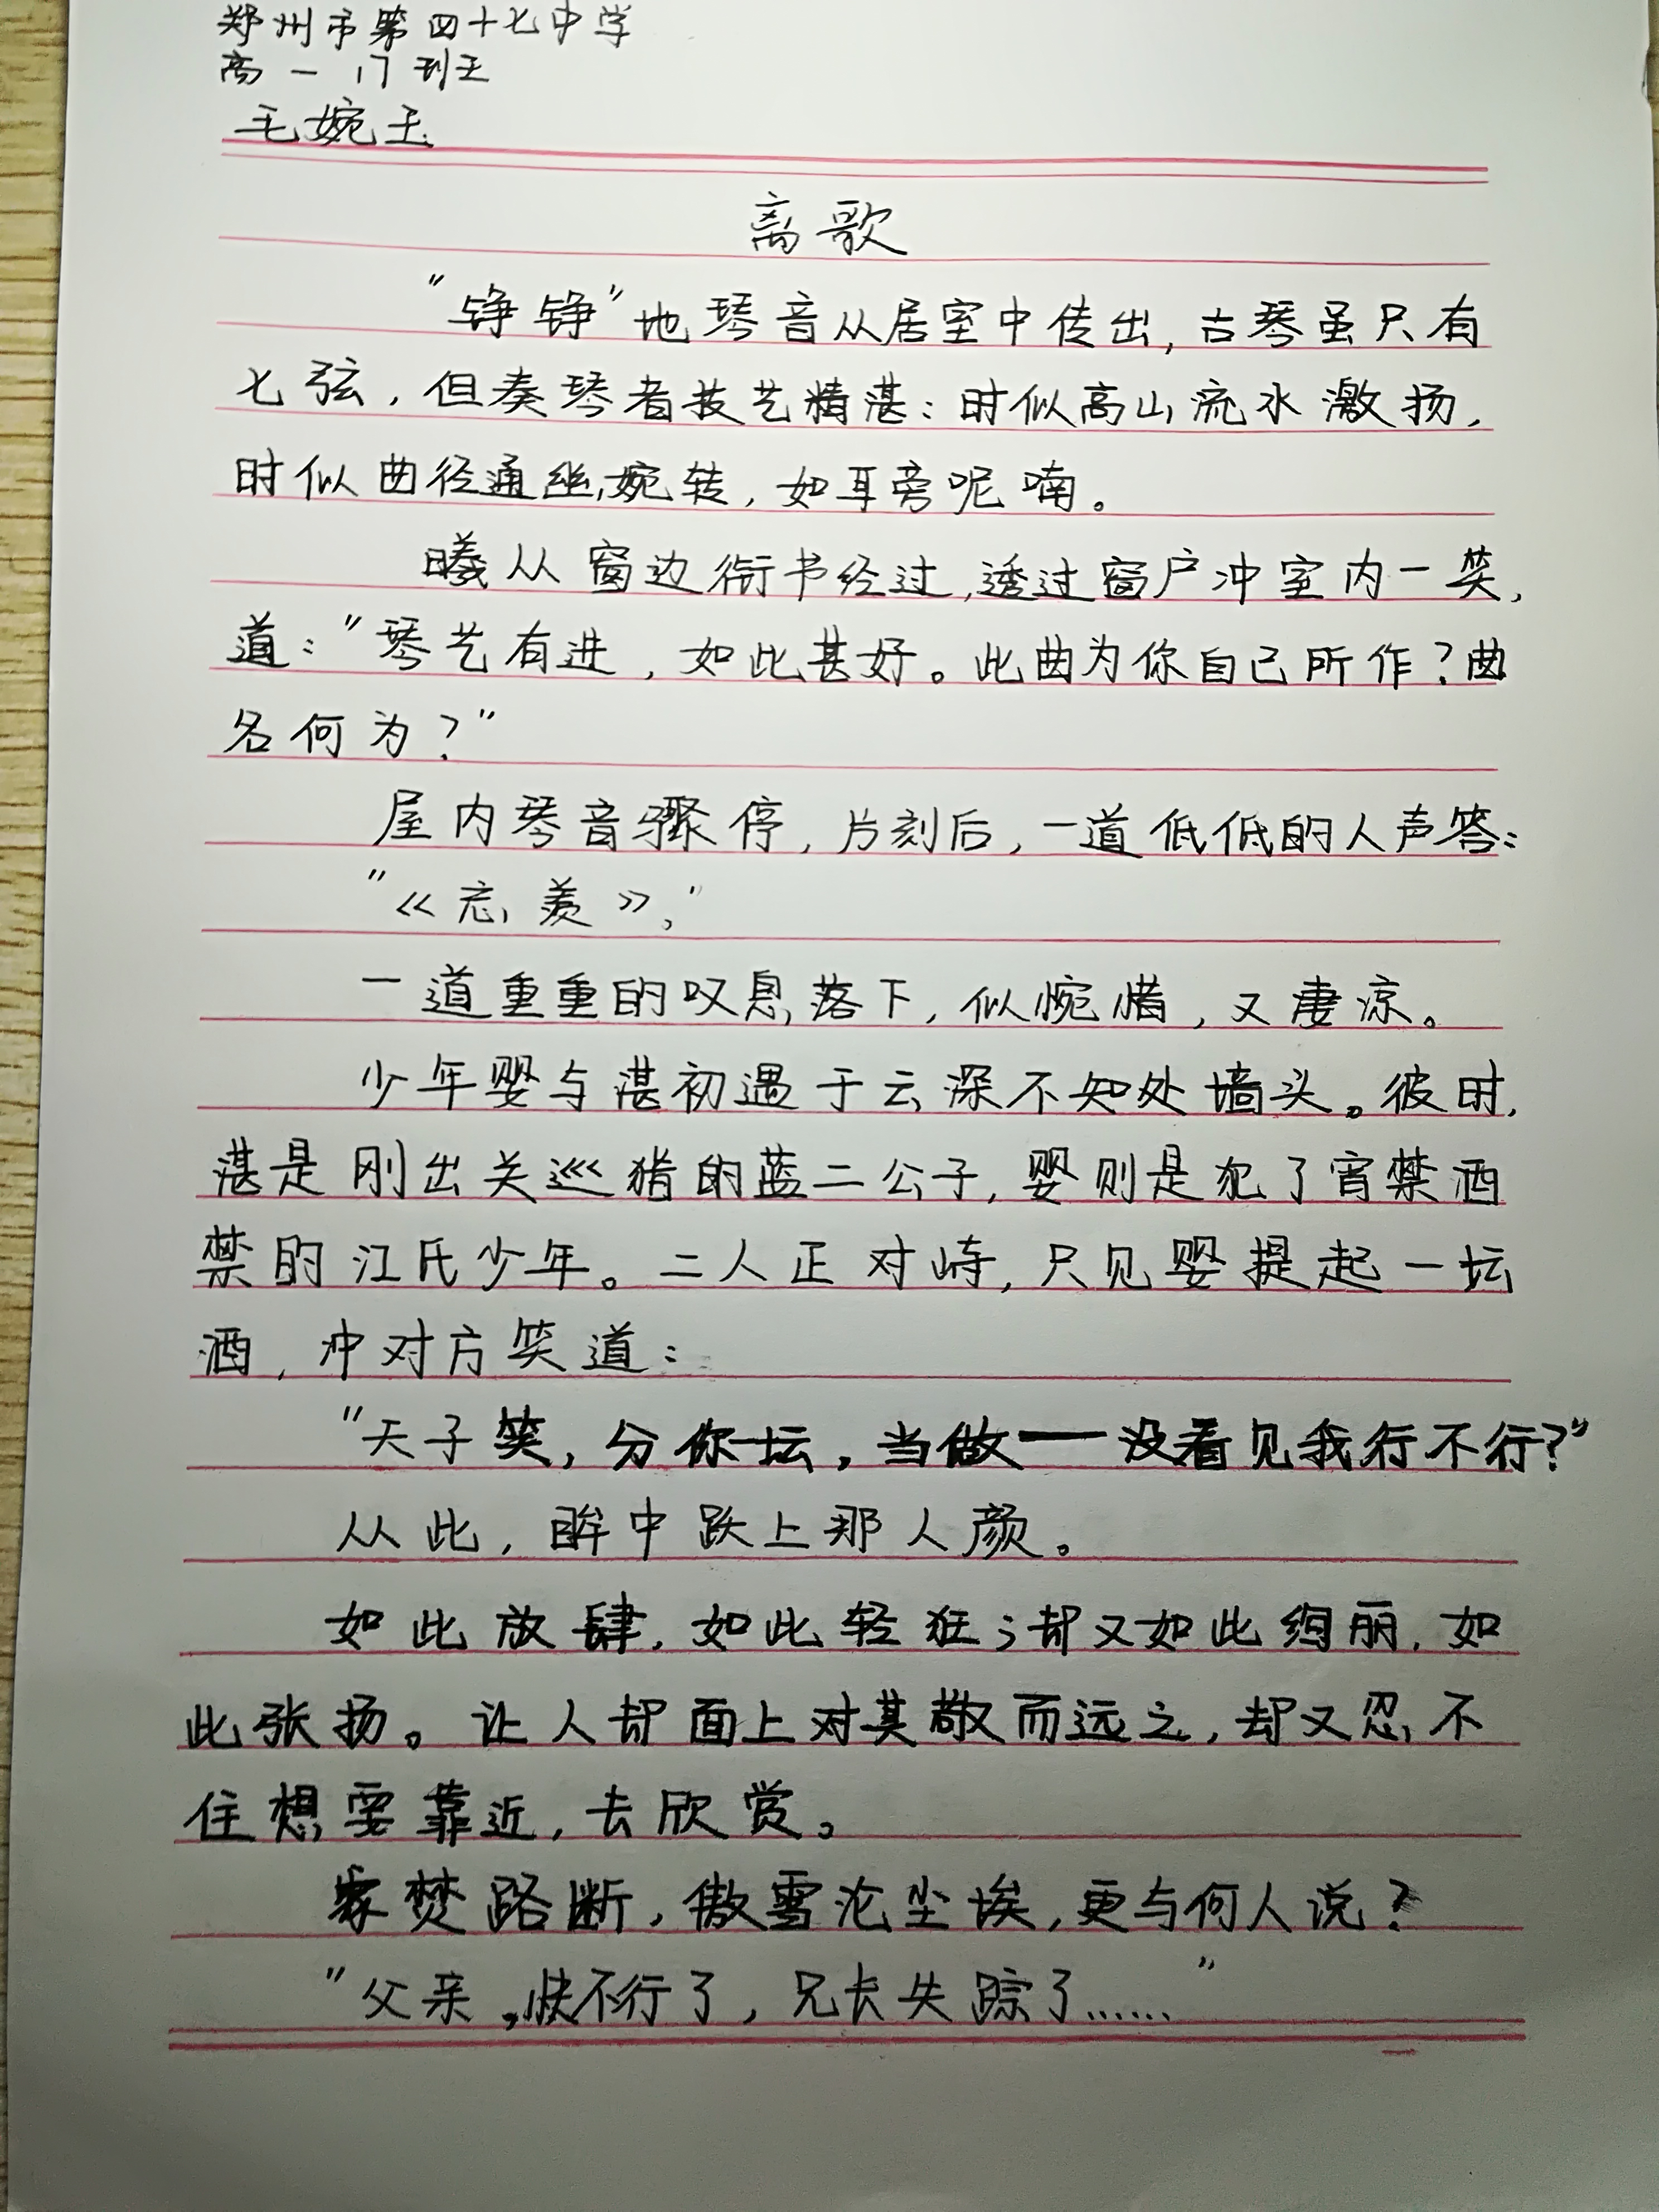 郑州市第四十七中学
高一17班
毛婉玉
离歌
“铮铮”地琴音从居室中传出，古琴虽只有
七弦，但奏琴者技艺精湛：时似高山流水激扬，
时似曲径通幽婉转，如耳旁呢喃。
曦从窗边衔书经过，透过窗户冲室内一笑，
道：“琴艺有进，如此甚好。此曲为你自己所作？曲
名何为？”
屋内琴音骤停，片刻后，一道低低的人声答：
“《忘羡》，”
一道重重的叹息落下，似惋惜，又凄凉。
少年婴与湛初遇于云深不知处墙头。彼时，
湛是刚出关巡猎的蓝二公子，婴则是犯了宵禁酒
禁的江氏少年。二人正对峙，只见婴提起一坛
酒，冲对方笑道：
“天子笑，分你一坛，当做——没看见我行不行？”
从此，眸中跃上那人颜。
如此放肆，如此轻狂；却又如此绚丽，如
此张扬。让人却面上对其敬而远之，却又忍不
住想要靠近，去欣赏。
家焚路断，傲雪沦尘埃，更与何人说？
“父亲，快不行了，兄长失踪了……”